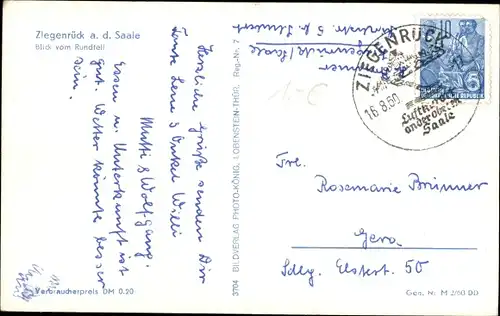 Ziegenrück a. d. Saale
Blick vom Rundteil
Herzliche Grüße senden Dir
Tante Leni & Onkel Willi
Mutti & Wolfgang.
Essen u. Unterkunft ist
gut. Wetter könnte besser
sein.
Verbraucherpreis DM 0.20
3704 BILDVERLAG PHOTO-KÖNIG, LOBENSTEIN-THÜR. Reg.-Nr. 2
Ziegenrück/Saale
ZIEGENRÜCK
16.8.60
Luftkurort
an der oberen
Saale
10
5
Frl.
Rosemarie Brünner
Gera
Sdlg. Elsterst. 50
Gen. Nr. M 2/60 DD